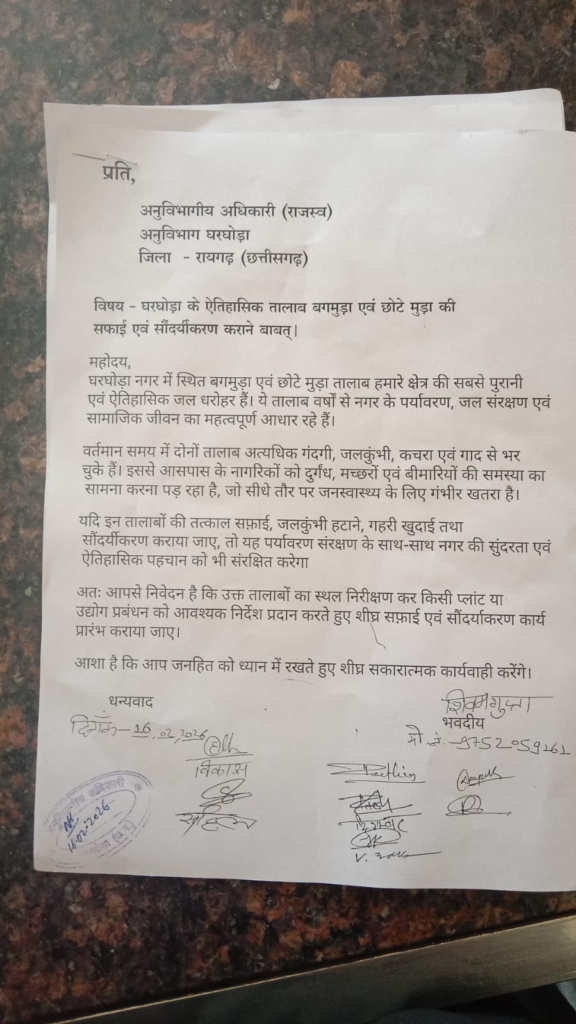 प्रति,
अनुविभागीय अधिकारी (राजस्व)
अनुविभाग घरघोड़ा
जिला - रायगढ़ (छत्तीसगढ़)
विषय - घरघोड़ा के ऐतिहासिक तालाब बगमुड़ा एवं छोटे मुड़ा की
सफाई एवं सौंदर्यीकरण कराने बाबत्।
महोदय,
घरघोड़ा नगर में स्थित बगमुड़ा एवं छोटे मुड़ा तालाब हमारे क्षेत्र की सबसे पुरानी
एवं ऐतिहासिक जल धरोहर हैं। ये तालाब वर्षों से नगर के पर्यावरण, जल संरक्षण एवं
सामाजिक जीवन का महत्वपूर्ण आधार रहे हैं।
वर्तमान समय में दोनों तालाब अत्यधिक गंदगी, जलकुंभी, कचरा एवं गाद से भर
चुके हैं। इससे आसपास के नागरिकों को दुर्गंध, मच्छरों एवं बीमारियों की समस्या का
सामना करना पड़ रहा है, जो सीधे तौर पर जनस्वास्थ्य के लिए गंभीर खतरा है।
यदि इन तालाबों की तत्काल सफ़ाई, जलकुंभी हटाने, गहरी खुदाई तथा
सौंदर्यीकरण कराया जाए, तो यह पर्यावरण संरक्षण के साथ-साथ नगर की सुंदरता एवं
ऐतिहासिक पहचान को भी संरक्षित करेगा
अतः आपसे निवेदन है कि उक्त तालाबों का स्थल निरीक्षण कर किसी प्लांट या
उद्योग प्रबंधन को आवश्यक निर्देश प्रदान करते हुए शीघ्र सफ़ाई एवं सौंदर्याकरण कार्य
प्रारंभ कराया जाए।
आशा है कि आप जनहित को ध्यान में रखते हुए शीघ्र सकारात्मक कार्यवाही करेंगे।
धन्यवाद
शिवम गुप्ता
भवदीय
दिनाँक - 16.02.2026
मो नं. - 9752059161
विकास